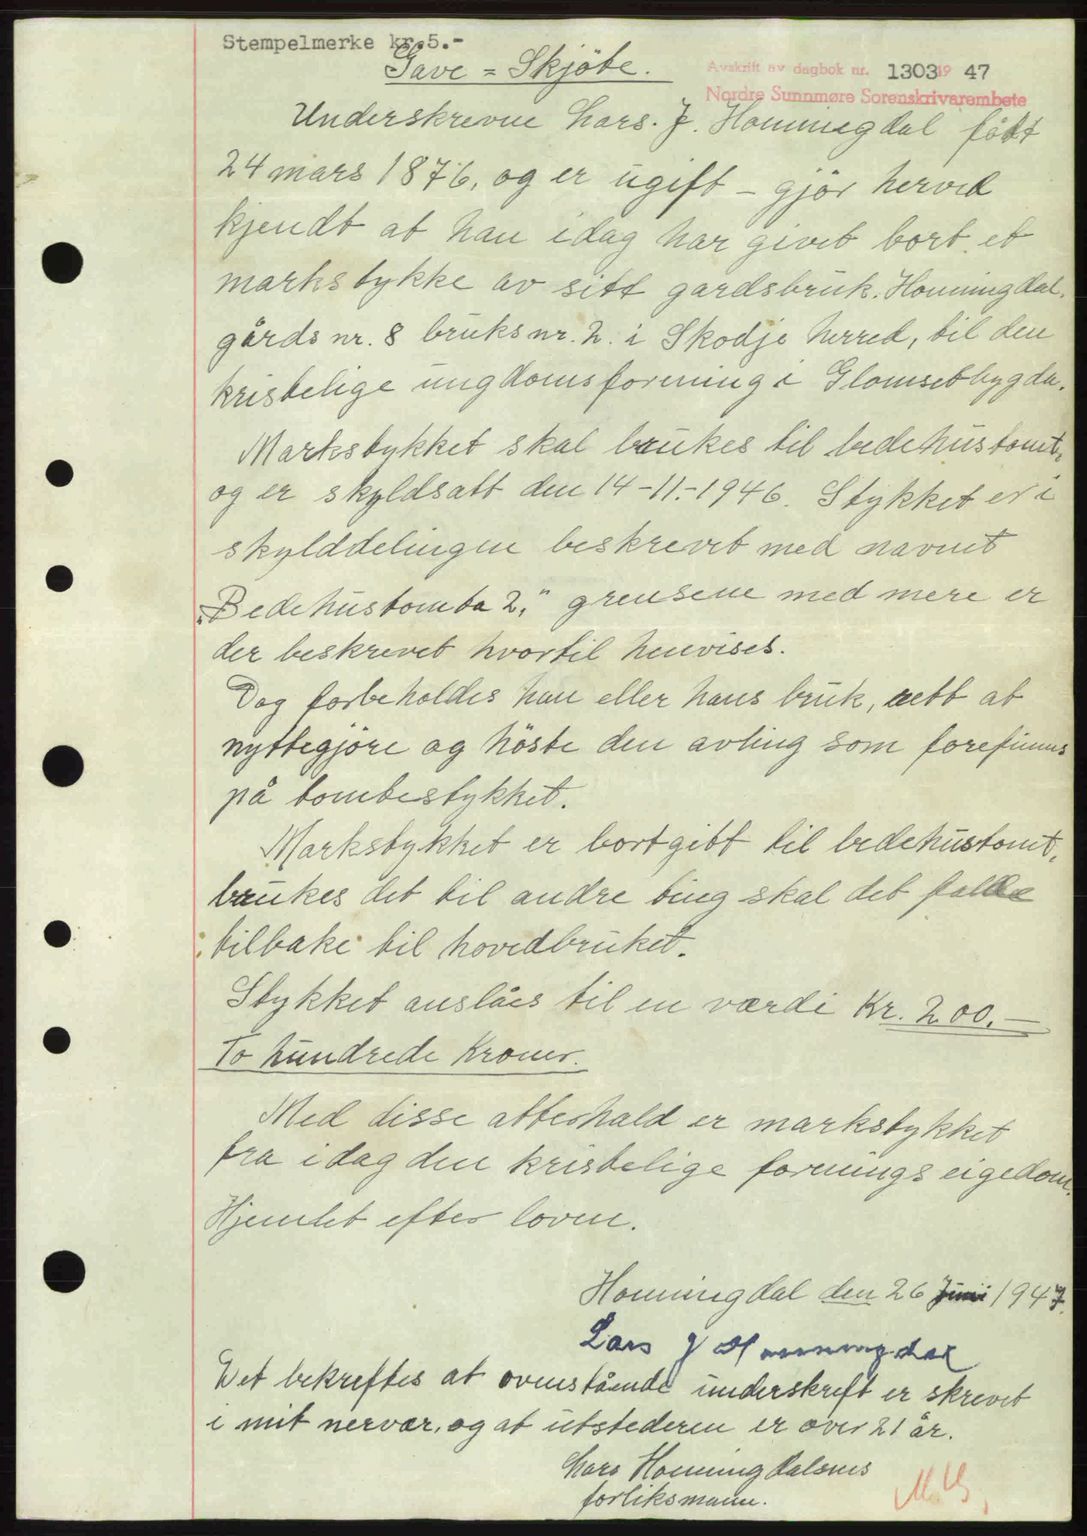 Stempelmerke kr.5.-
Gave = Skjöte.
Avskrift av dagbok nr. 1303 19 47
Nordre Sunnmøre Sorenskrivarembete
Underskrevne Lars. J. Honningdal född
24 mars 1876, og er ugift - gjör herved
kjendt at han idag har givet bort et
markstykke av sitt gardsbruk. Honningdal.
gårds nr. 8 bruksnr. 2. i Skodje herred, til den
kristelige ungdomsforening i Glomsetbygda.
Markstykket skal brukes til bedehustomt,
og er skyldsatt den 14-11.-1946. Stykket er i
skylddelingen beskrevet med navnet
„Bedehustomta 2," grensene med mere er
der beskrevet hvortil henvises.
Dog forbeholdes han eller hans bruk, rett at
nyttegjöre og höste den avling som forefinnes
på tomtestykket.
Markstykket er bortgitt til bedehustomt,
brukes det til andre ting skal det falle
tilbake til hovedbruket.
Stykket anslåes til en værdi Kr. 200.-
To hundrede Kroner.
Med disse atterhald er markstykket
fra idag den kristelige forenings eigedom.
Hjemlet efter loven.
Honningdal den 26 Juni 1947.
Lars J Honningdal
Det bekreftes at ovenstående underskrift er skrevet
i mit nervær, og at utstederen er over 21 år.
Lars Honningdalsnes
forliksmann.